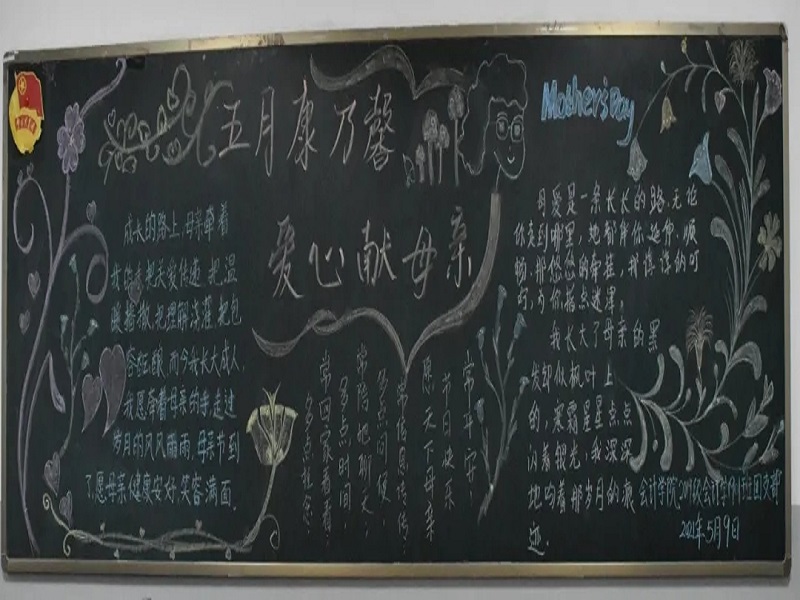 五月康乃馨
爱心献母亲
Mother's Day
成长的路上,母亲牵着
我的手,把关爱传递,把温
暖播撒,把理解浇灌,把包
容征服,而今我长大成人,
我愿牵着母亲的手,走过
岁月的风风雨雨,母亲节到
了,愿母亲健康安好,笑容满面.
常回家看看
多点时间
常陪把聊天
常陪
愿天下母亲
节日快乐
常平安
母爱是一条长长的路.无论
你走到哪里,她都伴你延伸.顺
畅.那悠悠的牵挂,那谆谆的叮
咛,为你指点迷津.
我长大了母亲的黑
发却似枫叶上
的,寒霜星星点点
闪着银光,我深深
地吻着那岁月的痕
迹.
会计学院2019级会计学1911班团支部
2021年5月9日